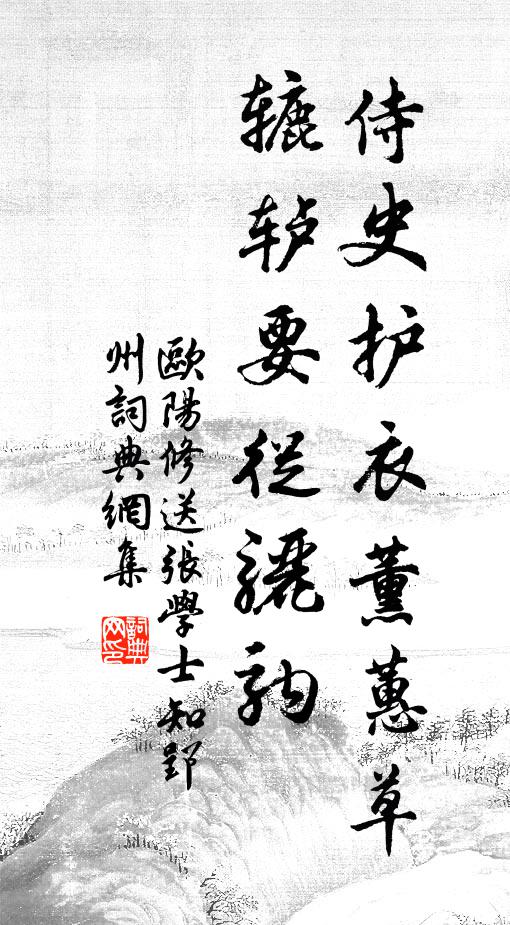 侍史护衣薰蕙草
辘轳要從驪駒
歐陽修送張學士知郢
州詞典網集
詞典
网印